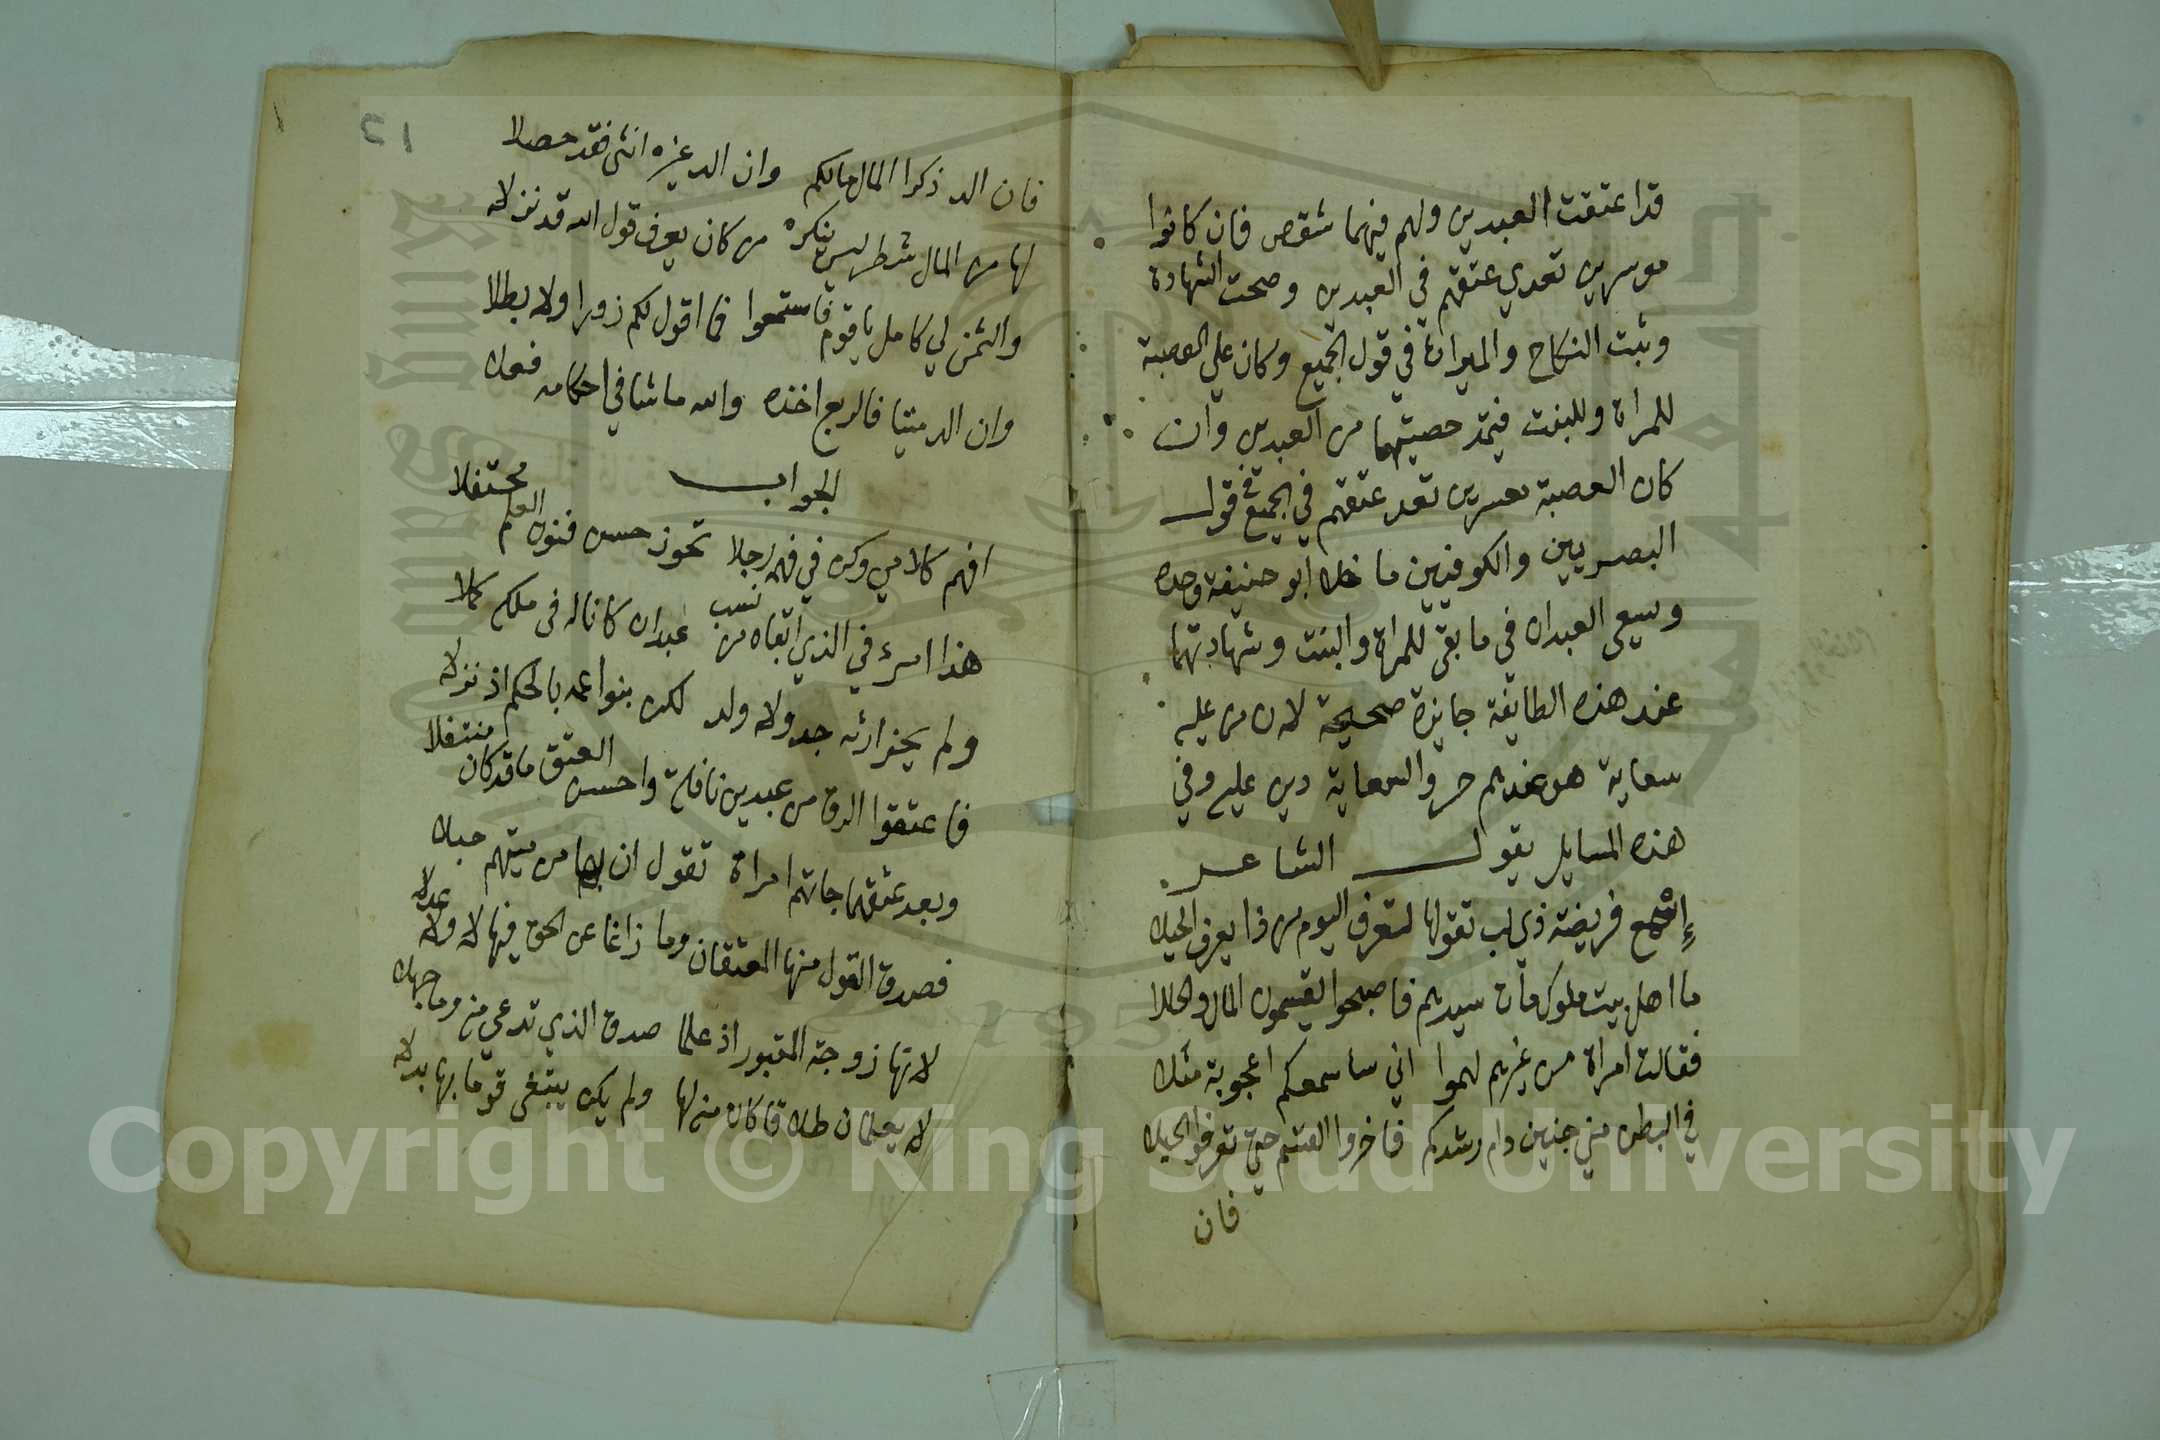 قد اعتقت العبدين ولهم فيهما شقص فان كانوا
موسرين تعدي عتقهم في العبدين وصحت الشهادة
وثبت النكاح والميراث في قول الجميع وكان علي العصبة
للمراة وللبنت قيمة حصيتهما من العبدين وان
كان العصبة معسرين تعد عتقهم في الجميع في قول
البصريين والكوفيين ما خلا أبو حنيفة وحده
وسيعى العبدان في ما بقى للمراة والبنت وشهادتهما
عند هذه الطايفة جايزة صحيحة لان من عليه
سعاية هو عندهم حر والسعاية دين عليه وفي
هذه المسايل يقول الشاعر
إسمع فريضة ذي لب تقولها لتعرف اليوم من ذا يعرف الحيلا
ما اهل بيت ملوك مات سيدهم فاصبحوا يقسمون المال والحللا
فقالت امراة من غيرهم لهموا اني ساسمعكم اعجوبة مثلا
في البطن مني جنين دام رشدكم فاخروا القسم حتي تعرفوا الحيلا
فان
١٢
فان الد ذكرا المال مالكم وان الد غيره انثى فقد حصلا
لها من المال شطر ليس ينكره من كان يعرف قول الله قد نزلا
والثمن لي كامل يا قوم فاستمعوا فما اقول لكم زورا ولا بطلا
وان الد ميتا فالربع اخذه والله ما شا في احكامه فعلا
الجواب
افهم كلامي وكن في فهمه رجلا تحوز حسن فنون العلم محتفلا
هذا امرء في الذي ابقاه من نسب عبدان كانا له في ملكه كملا
ولم يحز ارثه جد ولا ولد لكن بنوا عمه بالحكم اذ نزلا
فاعتقوا الرق من عبدين نافلة واحسن العتق ما قد كان منتفلا
وبعد عتقهما جاتهم امراة تقول ان بها من ميتهم حبلا
فصدق القول منها المعتقان وما زاغا عن الحق فيها لا ولا عدلا
لانها زوجة المقبور اذ علما صدق الذي تدعي منه وما جهلا
لا يعلمان طلاقا كان منه لها ولم يكن يبتغى قوما بها بدلا
Copyright © King Saud University
King Saud University
1957